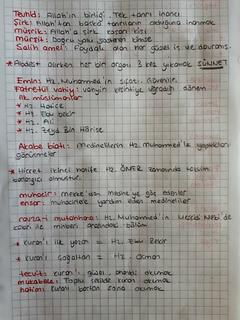 Tevhid: Allah'ın birliği, tek tanrı inancı
Şirk: Allah'tan başka tanrıların olduğuna inanmak
Müşrik: Allah'a şirk koşan kişi
Mürşit: Doğru yolu gösteren kimse
Salih amel: Faydalı olan her güzel iş ve davranış.
* Abdest alırken her bir organı 3 kez yıkamak SÜNNET
Emin: Hz. Muhammed'in sıfatı. Güvenilir.
Fetretül vahiy: vahyin kesintiye uğradığı dönem
ilk müslümanlar
* Hz. Hatice
* Hz. Ebu bekir
* Hz. Ali
* Hz. Zeyd Bin Hârise
Akabe biatı: Medinelilerin, Hz. muhammed ile yaptıkları
görüşmeler
* Hicret ikinci halife HZ. ÖMER zamanında takvim
başlangıcı olmuştur.
muhacir: mekke'den medine'ye göç edenler
ensar: muhacirlere yardım eden medineliler
ravza-i mutahhara: Hz. Muhammed'in Mescidi Nebi'de
evleri ile minberi arasındaki bölüm
* Kuran'ı ilk yazan = Hz. Ebu Bekir
* Kuran'ı çoğaltan = Hz. Osman
tecvit: kuran'ı güzel, anlamlı okumak
mukabele: Toplu şekilde kuran okumak
hatim: Kuranı baştan sona okumak